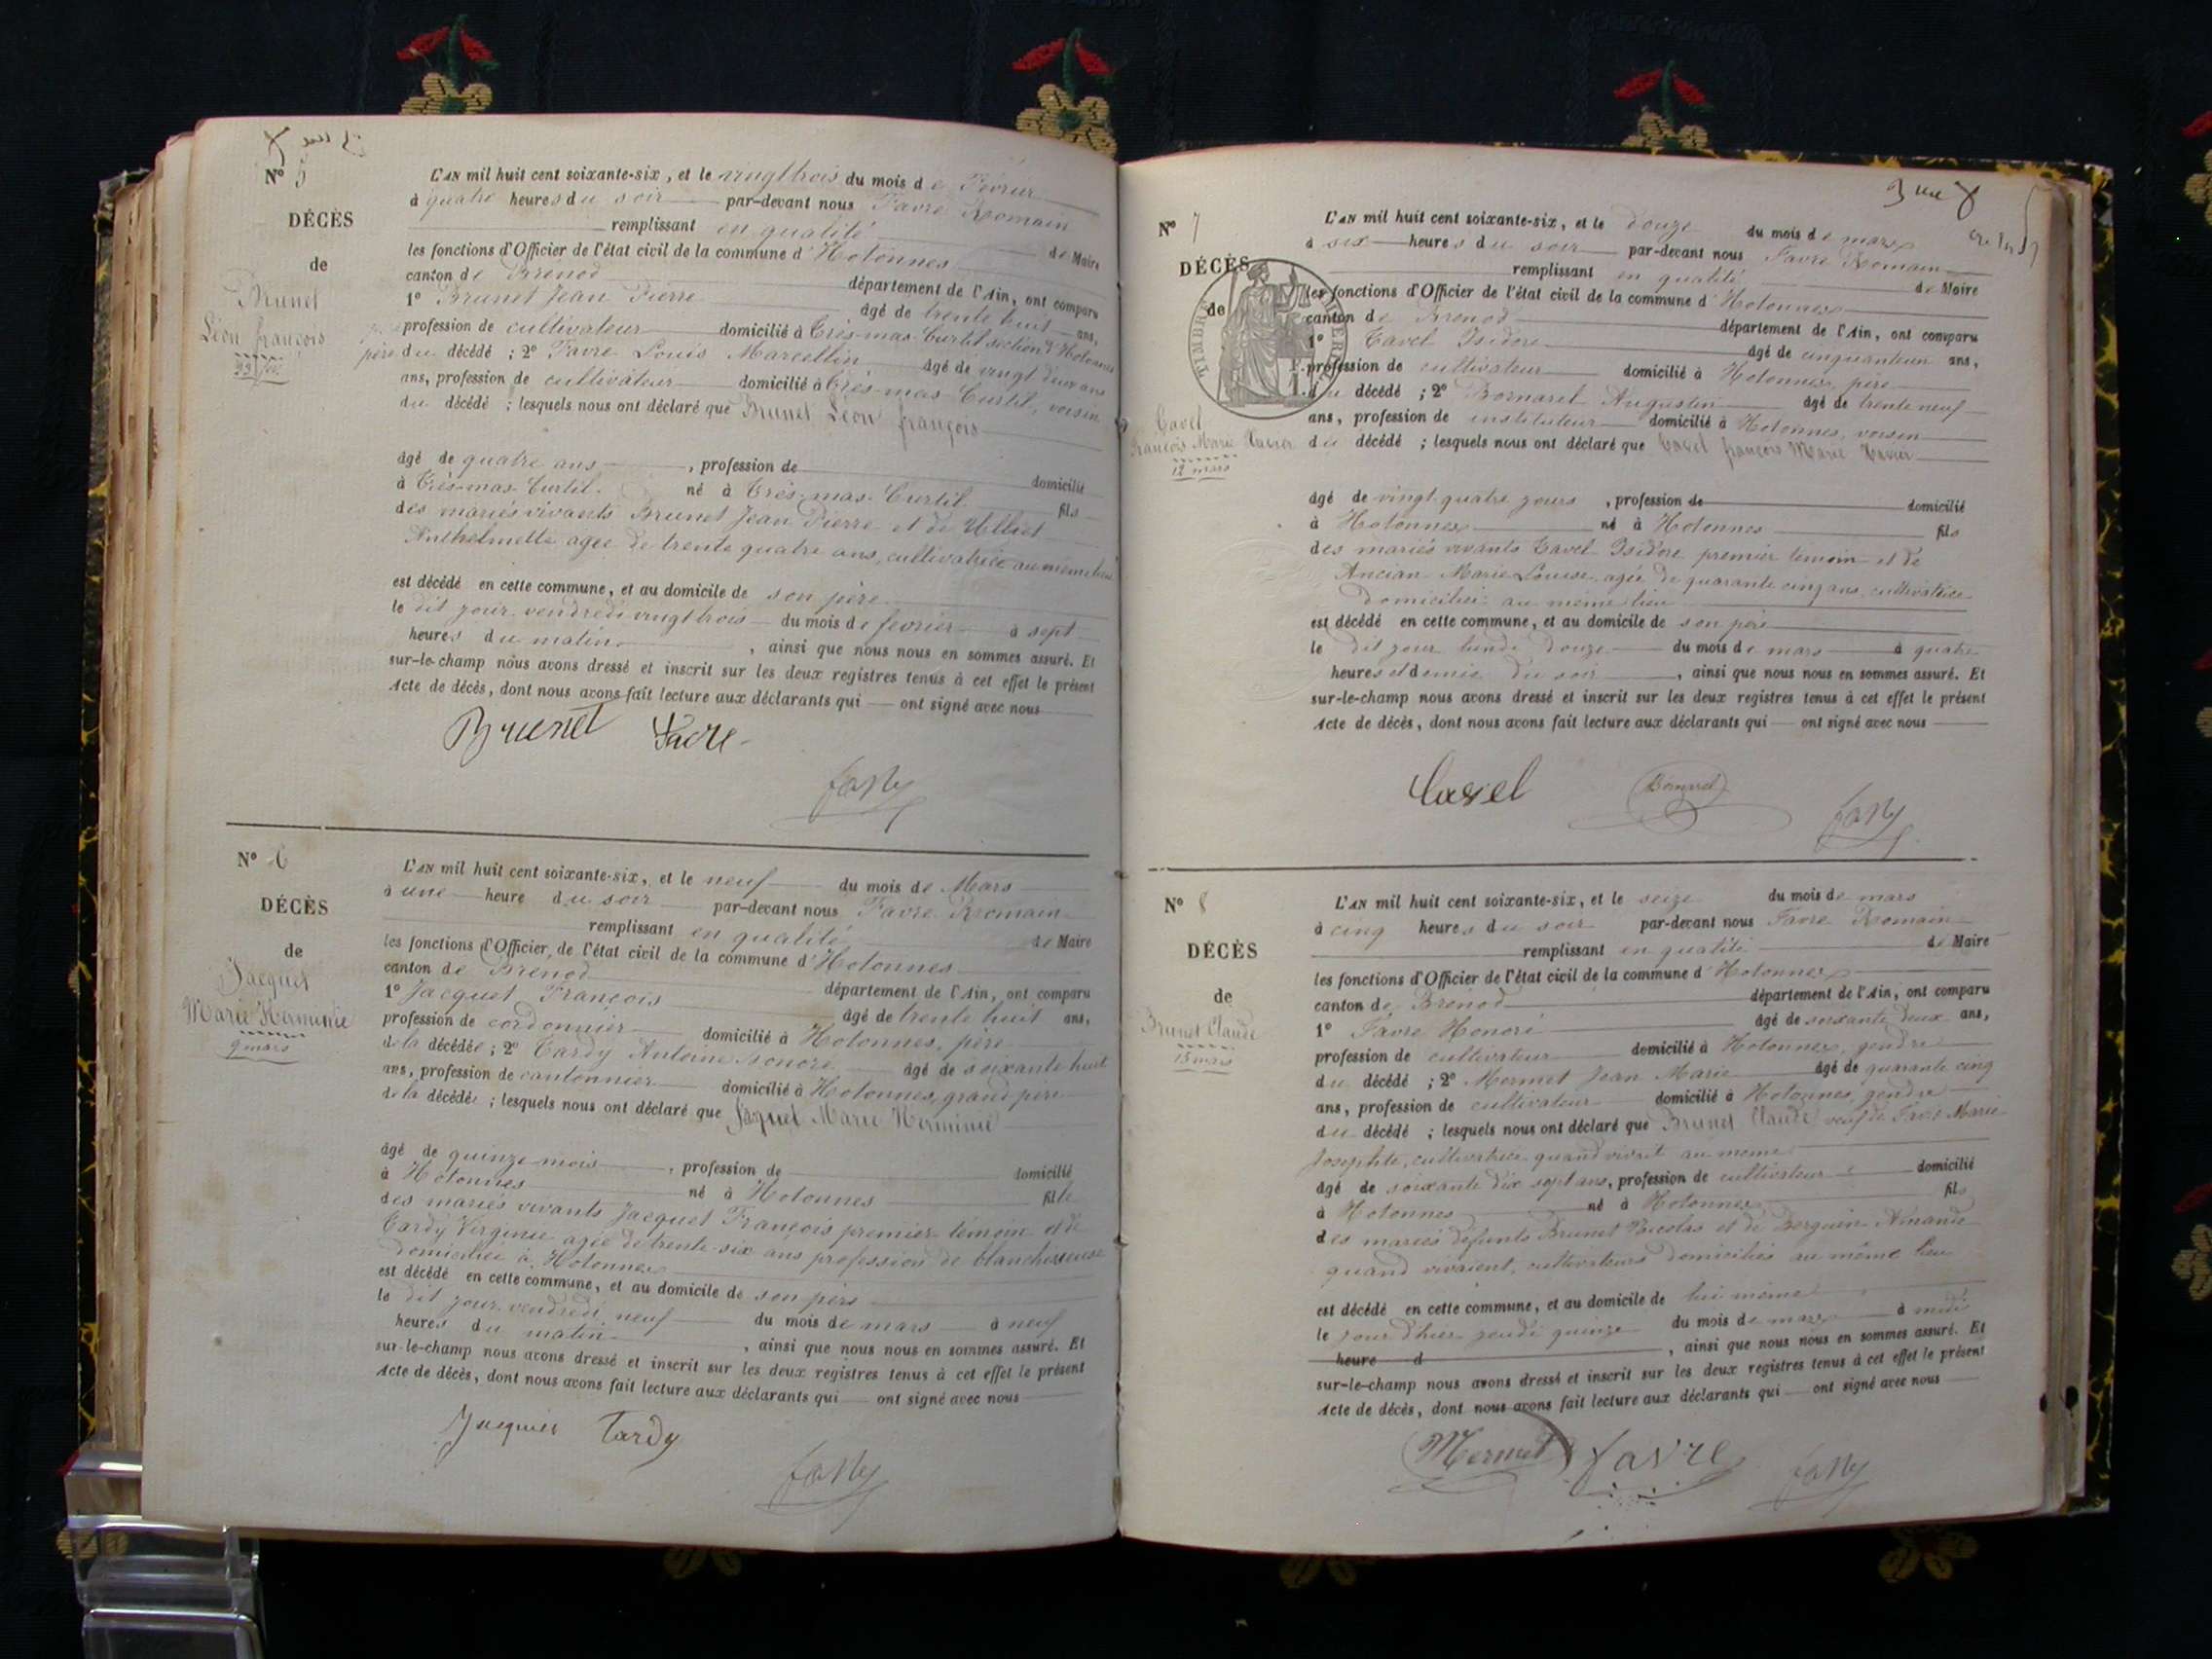 N° 5
DÉCÈS
de
Brunet
Léon françois
23 fév.
L'AN mil huit cent soixante-six, et le vingt trois du mois de Février
à quatre heures du soir par-devant nous Favre Romain
remplissant en qualité de Maire
les fonctions d'Officier de l'état civil de la commune d'Hotonnes
canton de Brenod département de l'Ain, ont comparu
1° Brunet Jean Pierre âgé de trente huit ans,
profession de cultivateur domicilié à Très-mas-Curtil section d'Hotonnes
père du décédé ; 2° Favre Louis Marcellin âgé de vingt deux ans
ans, profession de cultivateur domicilié à Très-mas Curtil, voisin
du décédé ; lesquels nous ont déclaré que Brunet Léon françois
âgé de quatre ans, profession de domicilié
à Très-mas-Curtil né à Très-mas-Curtil fils
des mariés vivants Brunet Jean Pierre et de
Anthelmette agée de trente quatre ans, cultivatrice au même lieu
est décédé en cette commune, et au domicile de son père
le dit jour vendredi vingt trois du mois de fevrier à sept
heures du matin, ainsi que nous nous en sommes assuré. Et
sur-le-champ nous avons dressé et inscrit sur les deux registres tenus à cet effet le présent
Acte de décès, dont nous avons fait lecture aux déclarants qui ont signé avec nous
Brunet Favre
N° 6
DÉCÈS
de
Jacquet
Marie Herminie
9 mars
L'AN mil huit cent soixante-six, et le neuf du mois de Mars
à une heure du soir par-devant nous Favre Romain
remplissant en qualité de Maire
les fonctions d'Officier de l'état civil de la commune d'Hotonnes
canton de Brenod département de l'Ain, ont comparu
1° Jacquet François âgé de trente huit ans,
profession de cordonnier domicilié à Hotonnes, père
de la décédée ; 2° Tardy Antoine honoré âgé de soixante huit
ans, profession de cantonnier domicilié à Hotonnes, grand père
de la décédée ; lesquels nous ont déclaré que Jaquet Marie Herminie
âgé de quinze mois, profession de domicilié
à Hotonnes né à Hotonnes fille
des mariés vivants Jacquet François premier témoin et de
Tardy Virginie agée de trente-six ans profession de blanchisseuse
domiciliée à Hotonnes
est décédé en cette commune, et au domicile de son père
le dit jour vendredi neuf du mois de mars à neuf
heures du matin, ainsi que nous nous en sommes assuré. Et
sur-le-champ nous avons dressé et inscrit sur les deux registres tenus à cet effet le présent
Acte de décès, dont nous avons fait lecture aux déclarants qui ont signé avec nous
Tardy
N° 7
DÉCÈS
de
Cavel
François Marie Xavier
12 mars
L'AN mil huit cent soixante-six, et le douze du mois de mars
à six heures du soir par-devant nous Favre Romain
remplissant en qualité de Maire
les fonctions d'Officier de l'état civil de la commune d'Hotonnes
canton de Brenod département de l'Ain, ont comparu
1° Cavel Isidore âgé de cinquante un ans,
profession de cultivateur domicilié à Hotonnes, père
du décédé ; 2° Bornaret Augustin âgé de trente neuf
ans, profession de instituteur domicilié à Hotonnes, voisin
du décédé ; lesquels nous ont déclaré que Cavel françois Marie Xavier
âgé de vingt quatre jours, profession de domicilié
à Hotonnes né à Hotonnes fils
des mariés vivants Cavel Isidore premier témoin et de
Ancian Marie Louise, agée de quarante cinq ans, cultivatrice
domiciliée au même lieu
est décédé en cette commune, et au domicile de son père
le dit jour lundi douze du mois de mars à quatre
heures et demie du soir, ainsi que nous nous en sommes assuré. Et
sur-le-champ nous avons dressé et inscrit sur les deux registres tenus à cet effet le présent
Acte de décès, dont nous avons fait lecture aux déclarants qui ont signé avec nous
Cavel
N° 8
DÉCÈS
de
Brunet Claude
15 mars
L'AN mil huit cent soixante-six, et le seize du mois de mars
à cinq heures du soir par-devant nous Favre Romain
remplissant en qualité de Maire
les fonctions d'Officier de l'état civil de la commune d'Hotonnes
canton de Brenod département de l'Ain, ont comparu
1° Favre Honoré âgé de soixante deux ans,
profession de cultivateur domicilié à Hotonnes, gendre
du décédé ; 2° Mermet Jean Marie âgé de quarante cinq
ans, profession de cultivateur domicilié à Hotonnes, gendre
du décédé ; lesquels nous ont déclaré que Brunet Claude veuf de Marie
Josephte, cultivatrice quand vivait au même
âgé de soixante dix sept ans, profession de cultivateur domicilié
à Hotonnes né à Hotonnes fils
des mariés défunts Brunet Nicolas et de
quand vivaient, cultivateurs domiciliés au même lieu
est décédé en cette commune, et au domicile de lui même
le jour d'hier jeudi quinze du mois de mars à midi
heure d, ainsi que nous nous en sommes assuré. Et
sur-le-champ nous avons dressé et inscrit sur les deux registres tenus à cet effet le présent
Acte de décès, dont nous avons fait lecture aux déclarants qui ont signé avec nous
Mermet favre